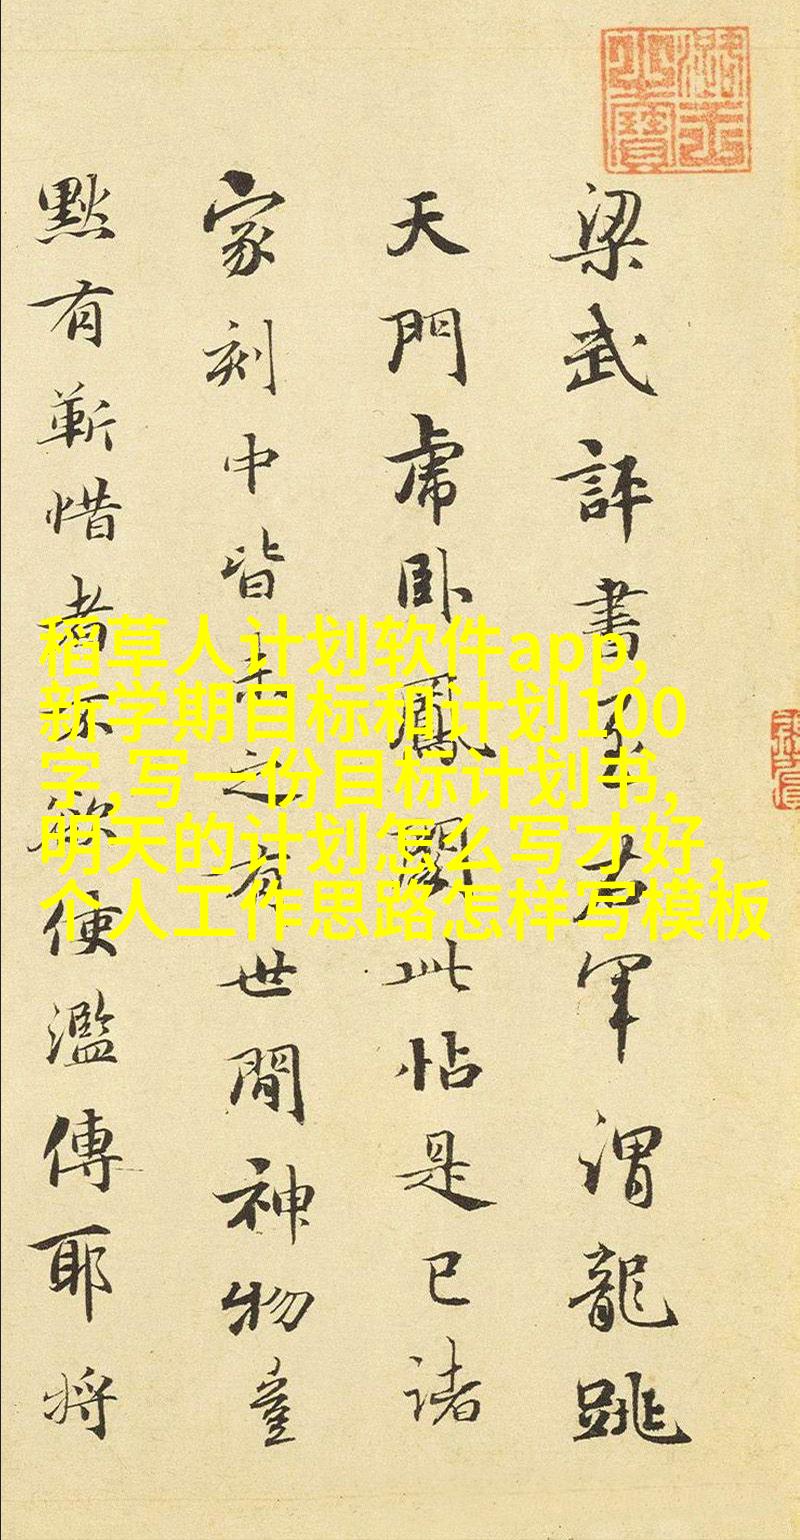 梁武評書至右軍謂龍跳
天門虎臥鳳閣此帖是已諸
家刻中皆未之有世間神物豈
黙有靳惜者不欲便濫傳耶将
稻草人计划软件app,
新学期目标和计划100
字,写一份目标计划书,
明天的计划怎么写才好,
个人工作思路怎样写模板